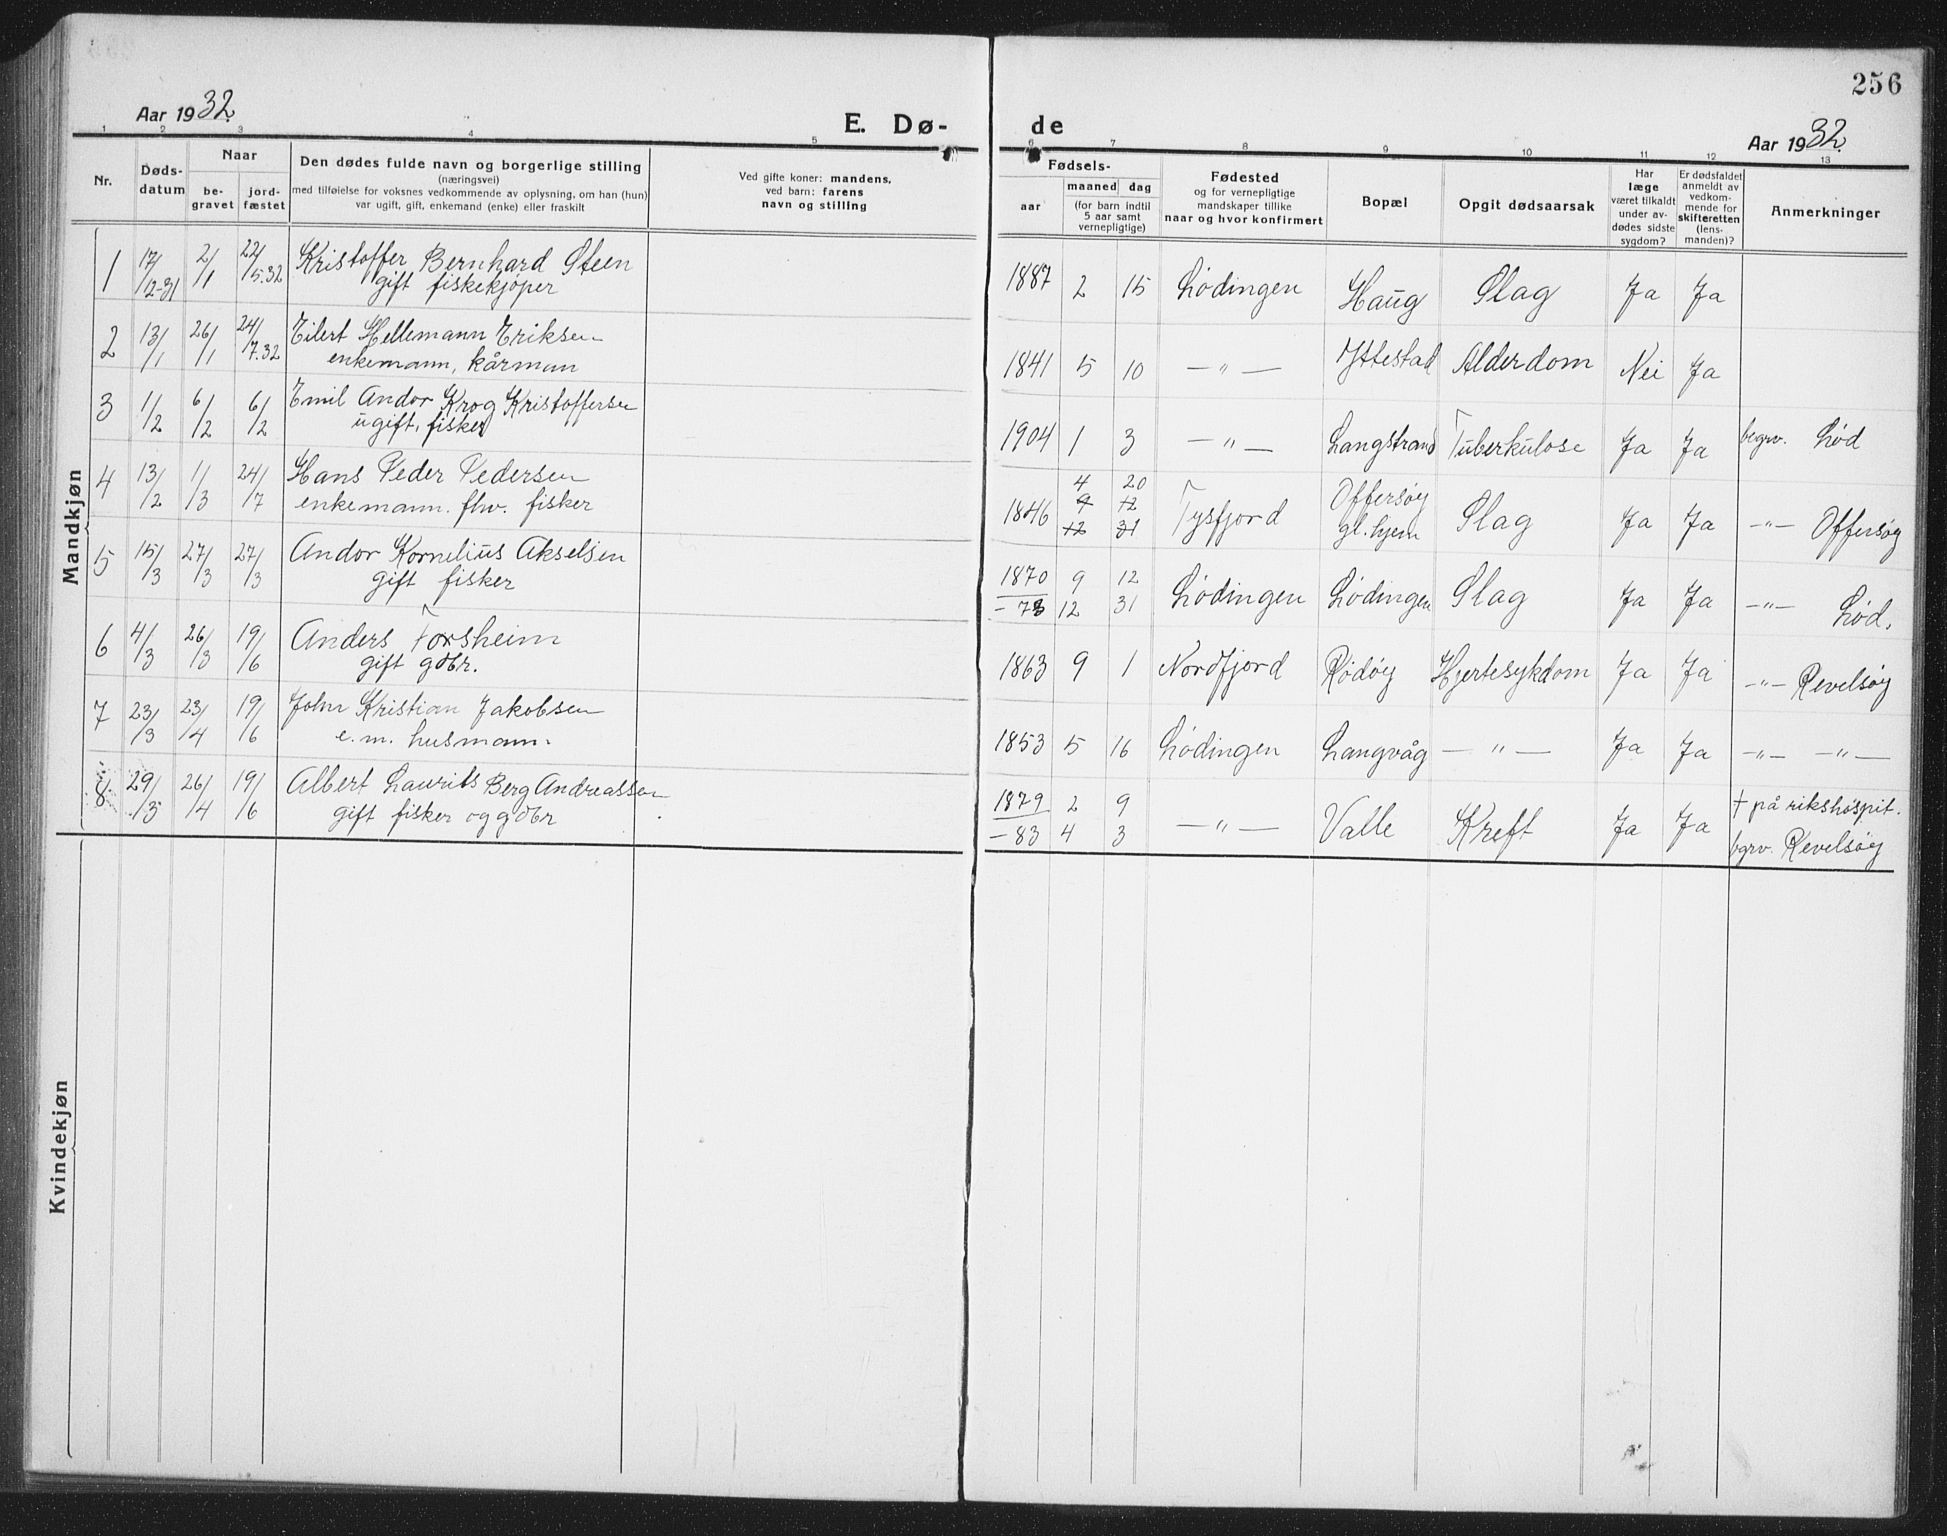 256
Aar 1932.
E. Dø-
de
Aar 1932.
1 2 3 4 5 6 7 8 9 10 11 12 13
Nr.
Døds-
datum
Naar
be-
gravet
jord-
fæstet
Den dødes fulde navn og borgerlige stilling
(næringsvei)
med tilføielse for voksnes vedkommende av oplysning, om han (hun)
var ugift, gift, enkemand (enke) eller fraskilt
Ved gifte koner: mandens,
ved barn: farens
navn og stilling
Fødsels-
aar
maaned
dag
(for barn indtil
5 aar samt
vernepligtige)
Fødested
og for vernepligtige
mandskaper tillike
naar og hvor konfirmert
Bopæl
Opgit dødsaarsak
Har
læge
været tilkaldt
under av-
dødes sidste
sygdom?
Er dødsfaldet
anmeldt av
vedkom-
mende for
skifteretten
(lens-
manden)?
Anmerkninger
Mandkjøn
1 17/12-31 2/1 22/5.32 Kristoffer Bernhard Steen 1887 2 15 Lødingen Haug Slag Ja Ja
gift fiskekjøper
2 13/1 26/1 24/7.32 Eilert Hellemann Eriksen 1841 5 10 —"— Ytrestad Alderdom Nei Ja
enkemann, kårman
3 1/2 6/2 6/2 Emil Andor Krog Kristoffersen 1904 1 3 —"— Langstrand Tuberkulose Ja Ja begrv. Lød
ugift, fisker
4 13/2 1/3 24/7 Hans Peder Pedersen 1846 4 20 9 12 12 31 Tysfjord Offersøy Slag Ja Ja —"— Offersøy
enkemann. fhv. fisker gl. hjem
5 15/3 27/3 27/3 Andor Kornelius Akselsen 1870 9 12 Lødingen Lødingen Slag Ja Ja —"— Lød.
gift fisker –73 12 31
6 4/3 26/3 19/6 Anders Forsheim 1863 9 1 Nordfjord Rødøy Hjertesykdom Ja Ja —"— Revelsøy
gift gdbr.
7 23/3 23/4 19/6 John Kristian Jakobsen 1853 5 16 Lødingen Langvåg —"— Ja Ja —"— —"—
e.m. husmann.
8 29/3 26/4 19/6 Albert Laurits Berg Andreassen 1879 2 9 —"— Valle Kreft Ja Ja † på rikshospit.
gift fisker og gdbr –83 4 3 bgrv. Revelsøy
Kvindekjøn